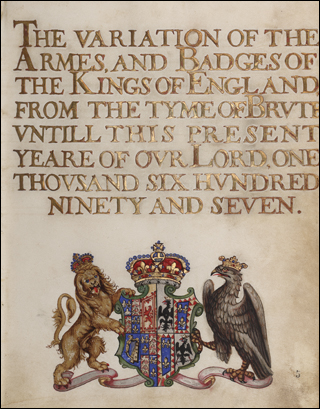 THE VARIATION OF THE
ARMES, AND BADGES OF
THE KINGS OF ENGLAND,
FROM THE TYME OF BRVTE
VNTILL THIS PRESENT
YEARE OF OVR LORD, ONE
THOVSAND SIX HVNDRED
NINETY AND SEVEN.